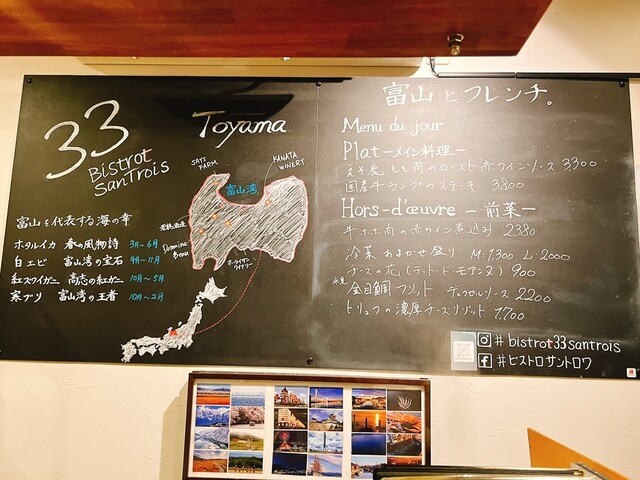 33
Bistrot
SanTrois
Toyama
SAYS FARM
KANATA WINERY
富山湾
若鶴酒造
Domaine Beau
ホーライサン ワイナリー
富山を代表する海の幸
ホタルイカ 春の風物詩 3月~6月
白エビ 富山湾の宝石 4月~11月
紅ズワイガニ 高志の紅ガニ 10月~5月
寒ブリ 富山湾の王者 10月~2月
富山とフレンチ。
Menu du jour
Plat -メイン料理-
もも肉のロースト 赤ワインソース 3,300
国産牛ランプのステーキ 3,800
Hors-d'œuvre - 前菜 -
牛ホホ肉の赤ワイン煮込み 2380
冷菜おまかせ盛り M:1,300 L:2,000
チーズの花(テット・ド・モアンヌ) 900
氷見 金目鯛フリット デュクセルソース 2200
トリュフの濃厚チーズリゾット 1,700
#bistrot33santrois
#ビストロサントロワ